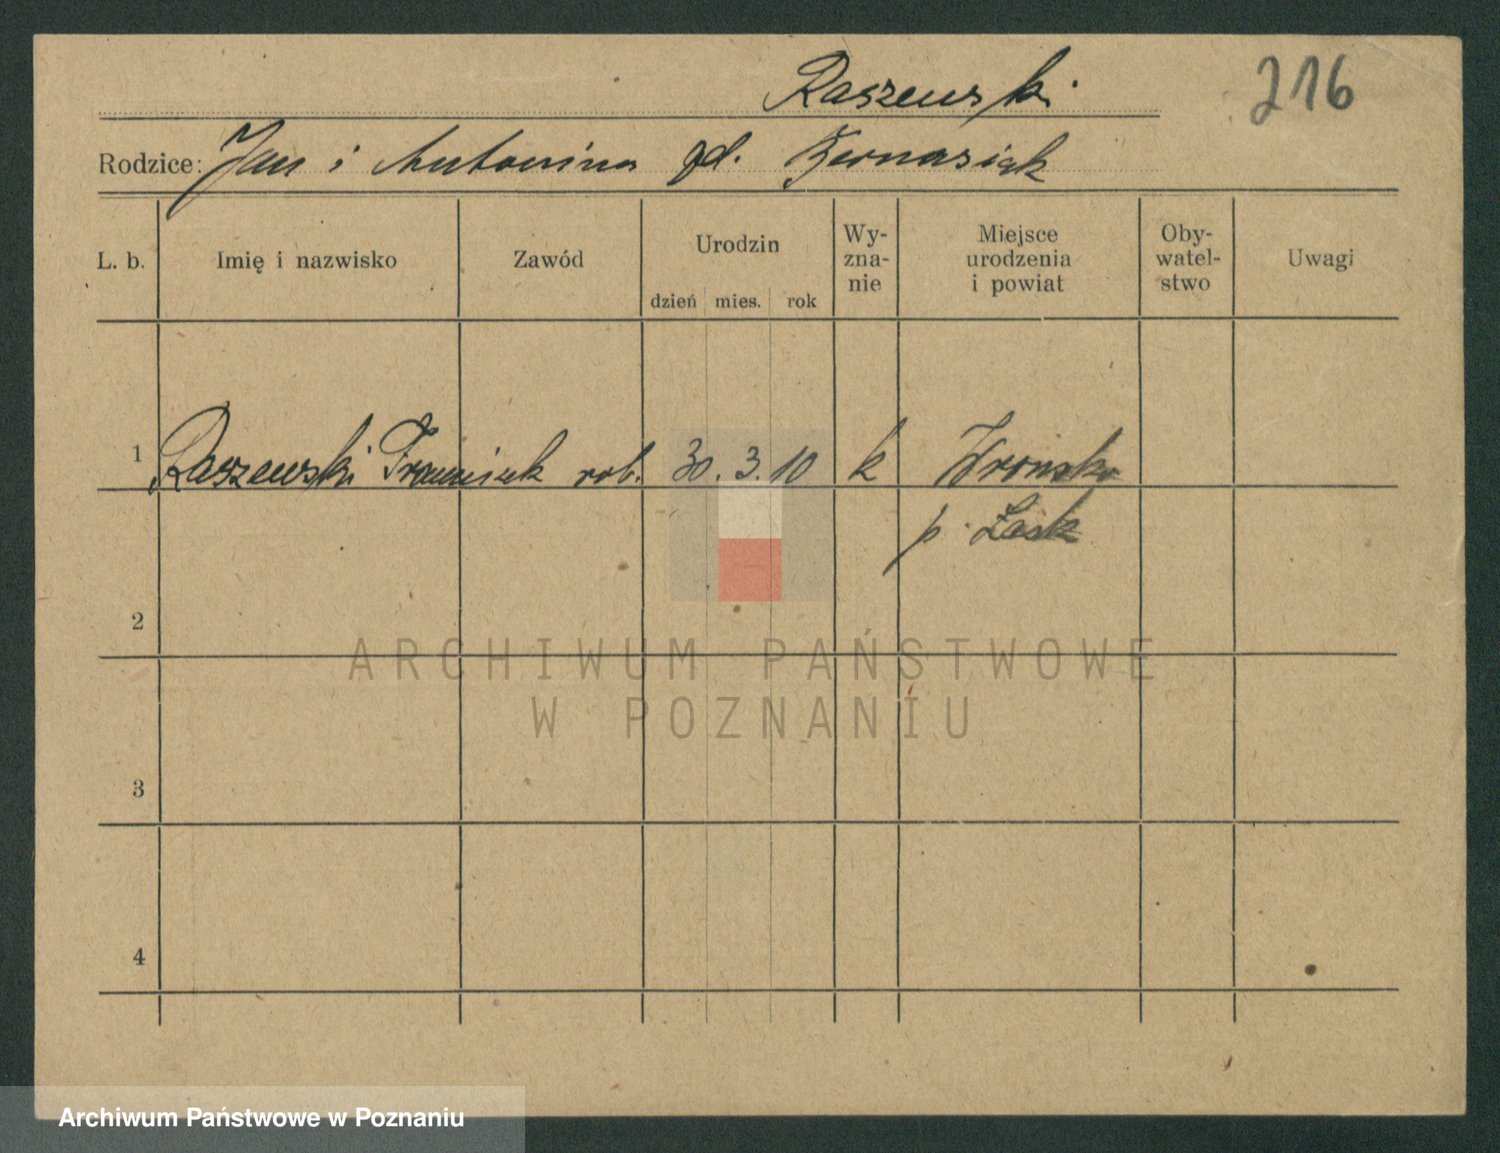 Raszewski
216
Rodzice: Jan i Antonina zd. Bernasiak
L. b. Imię i nazwisko Zawód Urodzin dzień mies. rok Wy-zna-nie Miejsce urodzenia i powiat Oby-watel-stwo Uwagi
1 Raszewski Franciszek rob. 30. 3. 10 k Wronsko
p. Łask
2
3
4
ARCHIWUM PAŃSTWOWE
W POZNANIU
Archiwum Państwowe w Poznaniu